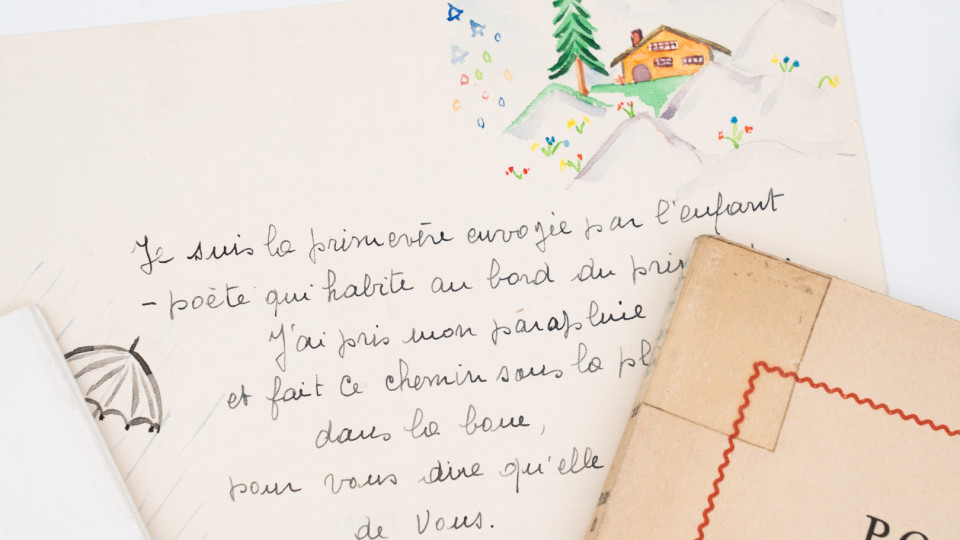 Je suis la primevère envoyée par l'enfant
- poète qui habite au bord du
J'ai pris mon parapluie
et fait ce chemin sous la
dans la boue,
pour vous dire qu'elle
de Vous.